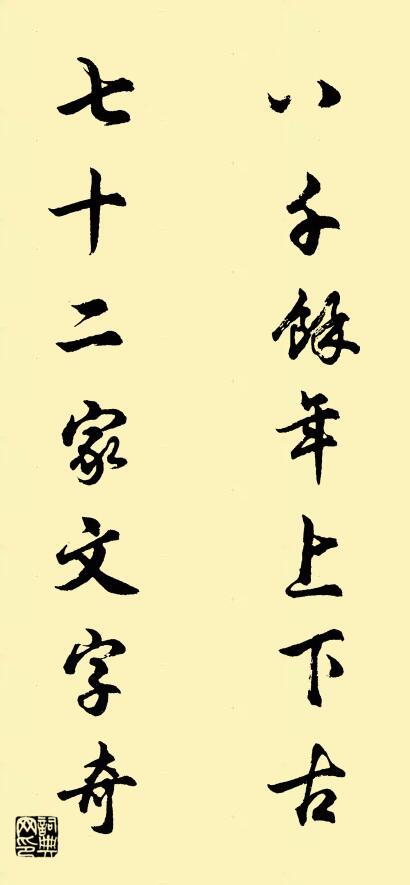 八千餘年上下古
七十二家文字奇
詞典
网印